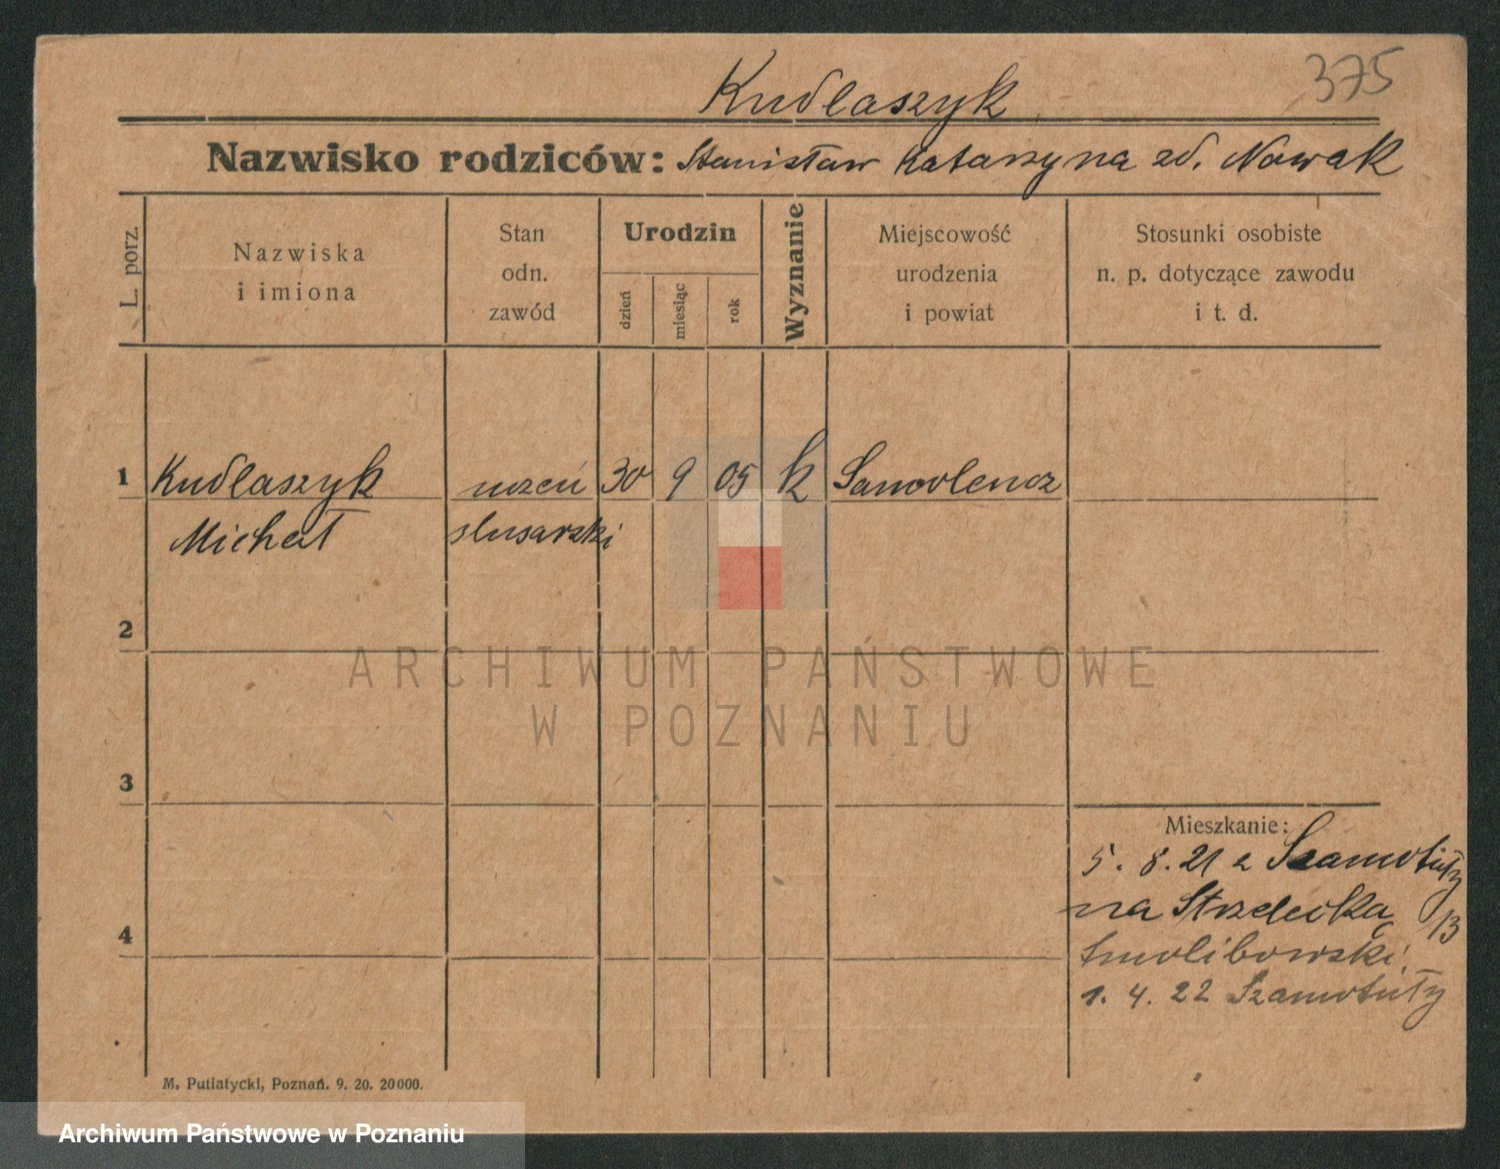 375
Kudlaszyk
Nazwisko rodziców: Stanisław Katarzyna zd. Nowak
L. porz.
Nazwiska
i imiona
Stan
odn.
zawód
Urodzin
dzień
miesiąc
rok
Wyznanie
Miejscowość
urodzenia
i powiat
Stosunki osobiste
n. p. dotyczące zawodu
i t. d.
1 Kudlaszyk uczeń 30 9 05 k
Michał slusarski
2
3
4
Mieszkanie:
5. 8. 21 z Szamotuły
na Strzelecka 13
1. 4. 22 Szamotuły
M. Putiatycki, Poznań. 9. 20. 20000.
ARCHIWUM PAŃSTWOWE
W POZNANIU
Archiwum Państwowe w Poznaniu